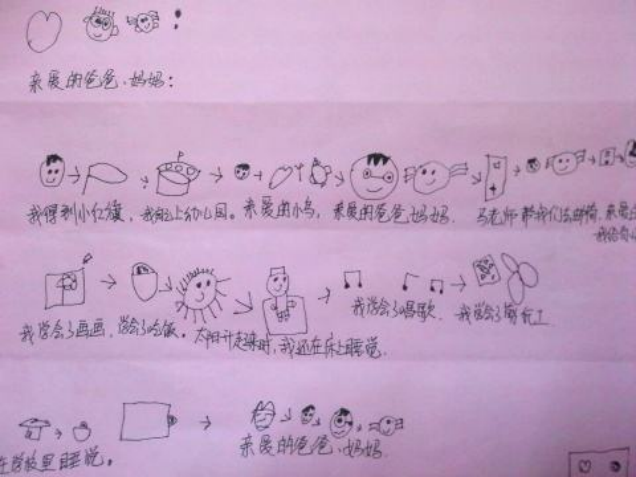 亲爱的爸爸、妈妈：
我得到小红旗，我自己上幼儿园。亲爱的小鸟，亲爱的爸爸、妈妈. 马老师带我们去邮
我学会了画画，学会了吃饭。太阳升起来时，我还在床上睡觉.
我学会了唱歌. 我学会了剪纸工
在学校里睡觉。
亲爱的爸爸、妈妈